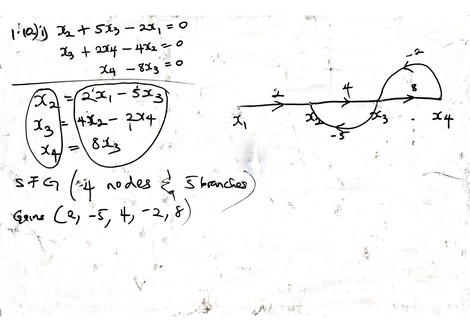 1·(a)i) x2 + 5x3 − 2x1 = 0
x3 + 2x4 − 4x2 = 0
x4 − 8x3 = 0
x2 = 2x1 − 5x3
x3 = 4x2 − 2x4
x4 = 8x3
SFG (4 nodes & 5 branches)
Gains (2, −5, 4, −2, 8)
−2
2 4 8
x1 x2 x3 x4
−5